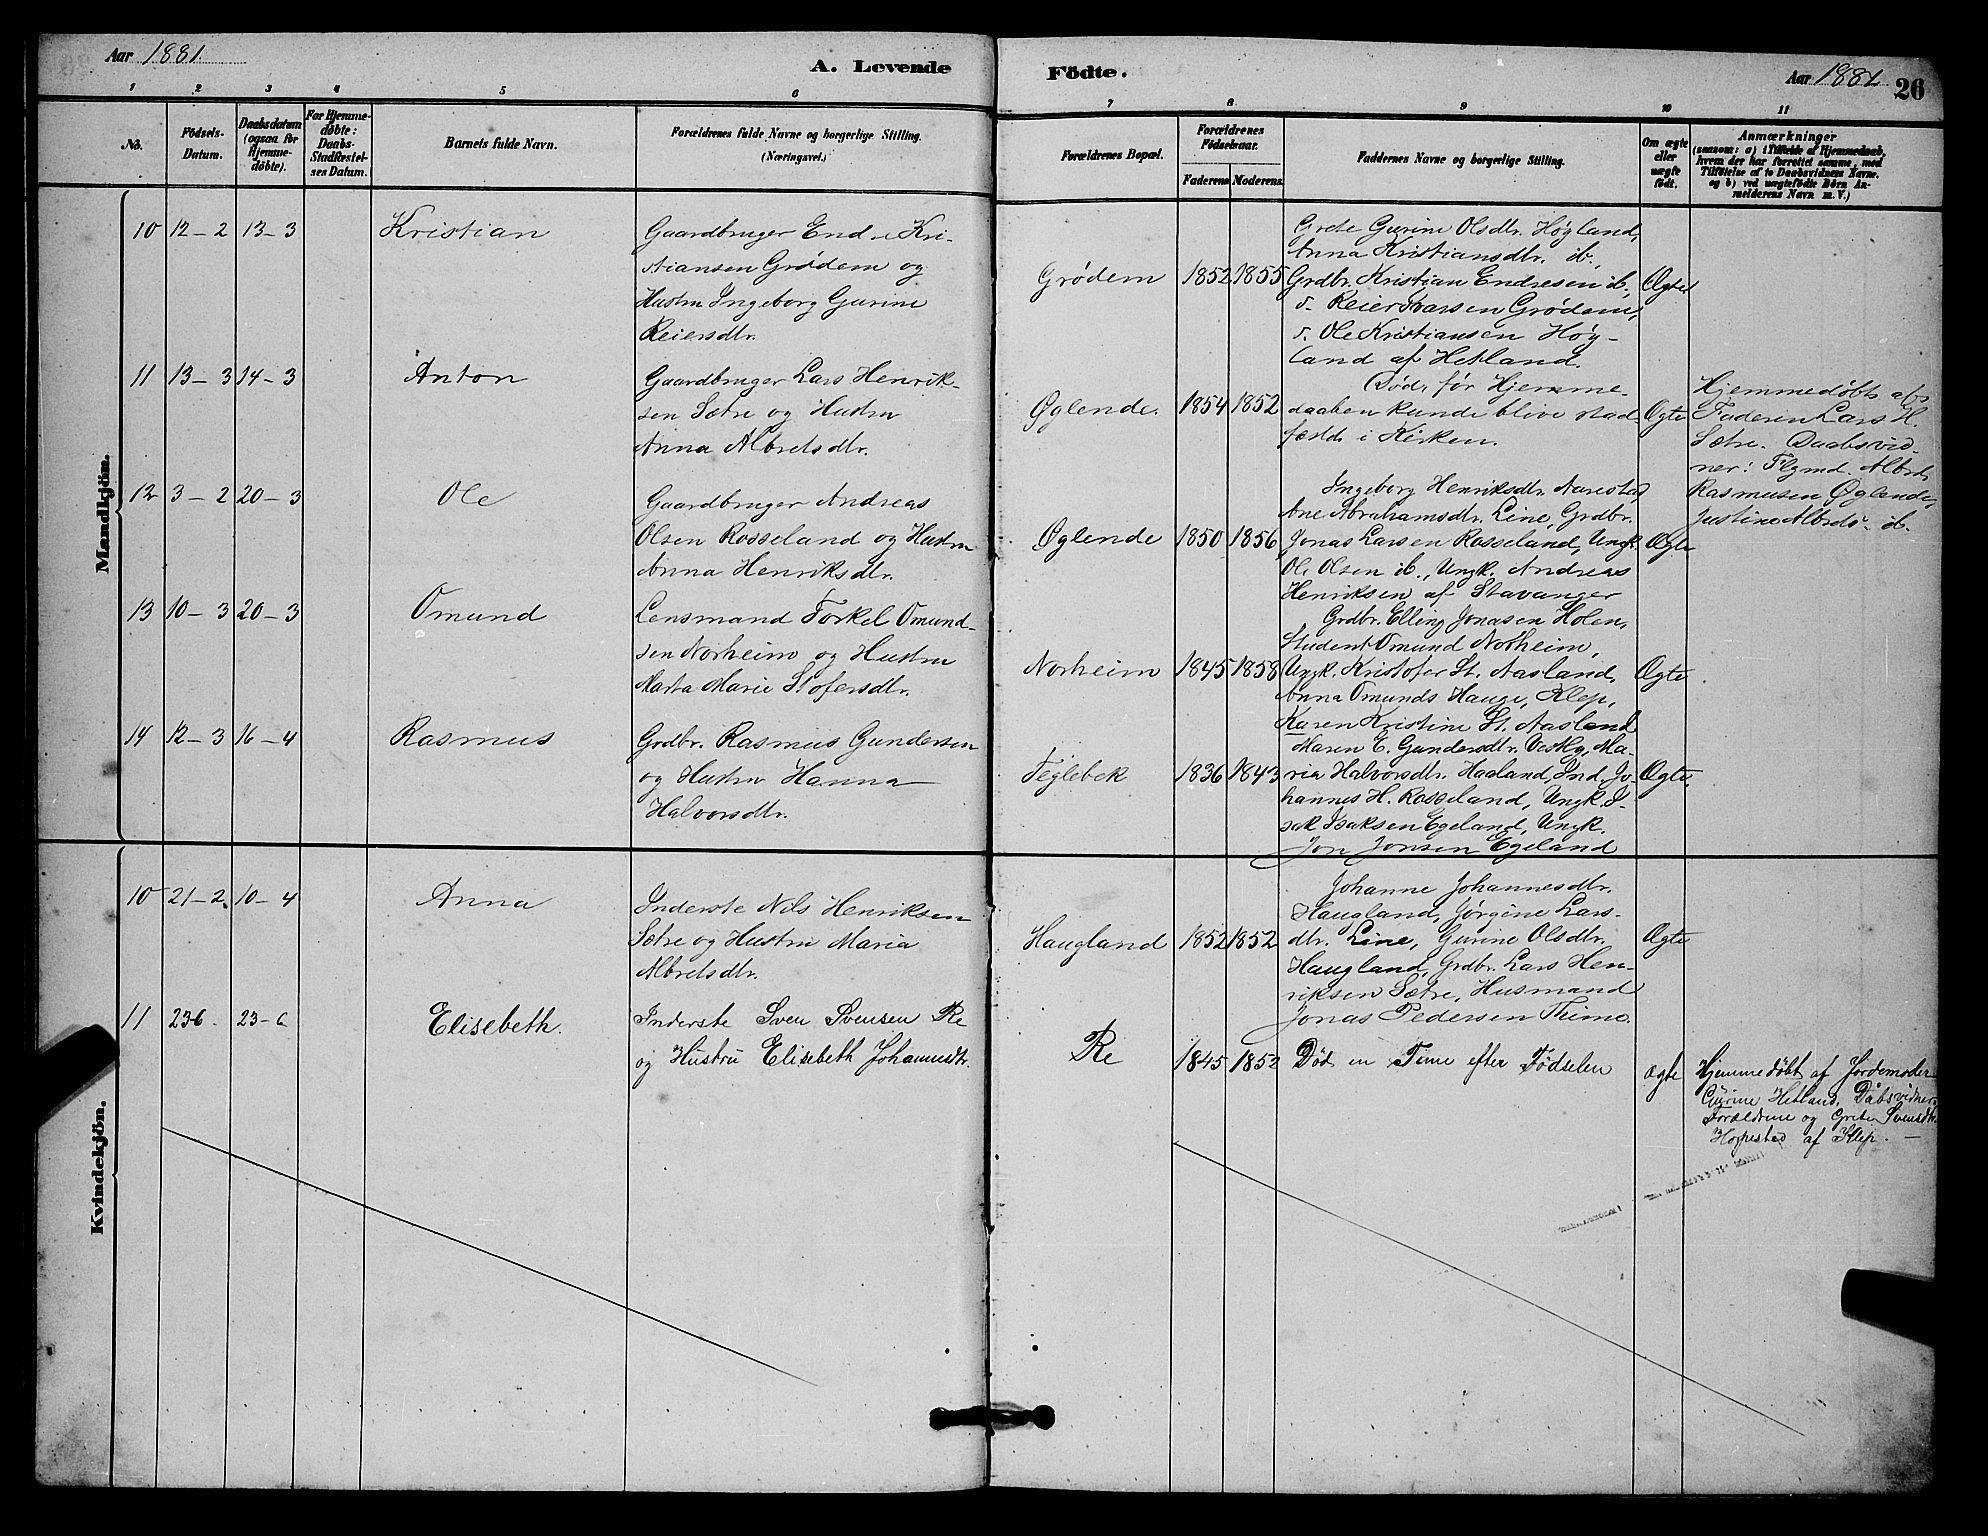 Aar 1881.
A. Levende
Födte.
Aar 1881.
26
1 2 3 4 5 6
7 8 9 10 11
No.
Födsels-
Datum.
Daabsdatum
(ogsaa for
Hjemme-
döbte).
For Hjemme-
döbte:
Daabs-
Stadfæstel-
ses Datum.
Barnets fulde Navn.
Forældrenes fulde Navne og borgerlige Stilling.
(Næringsvei.)
Forældrenes Bopæl.
Forældrenes
Födselsaar.
Faderens Moderens
Faddernes Navne og borgerlige Stilling.
Om ægte
eller
uægte
født.
Anmærkninger
(saasom: a) i Tilfælde af Hjemmedaab,
hvem der har forrettet samme, med
Tilföielse af to Daabsvidners Navne.
og b) ved uægtefödte Börn An-
melderens Navn m. V.)
Mandkjön.
10 12-2 13-3 Kristian
Gaardbruger Endre Kri-
stiansen Grødem og
Hustru Ingeborg Gurine
Reiersdtr.
Grødem 1852 1855
Grete Gurine Olsdtr. Høgland,
Anna Kristiansdtr. ib.,
Grdbr. Kristian Endresen ib.,
v. Reier Ivarssen Grødem,
v. Ole Kristiansen Høg-
land af Hetland.
Ægte
11 13-3 14-3 Anton
Gaardbruger Lars Henrik-
sen Sætre og Hustru
Anna Albretsdtr.
Øglende. 1854 1852
Død, før Hjemme-
daaben kunde blive stad-
fæstet i Kirken.
Ægte
Hjemmedøbt af
Faderen Lars H.
Sætre. Daabsvid-
ner: Flgmd. Albret
Rasmusen Øglende,
Justine Albretsd. ib.
12 3-2 20-3 Ole
Gaardbruger Andreas
Olsen Rosseland og Hustru
Anna Henriksdtr.
Øglende 1850 1856
Ingeborg Henriksdtr. Aarestad,
Ane Abrahamsdtr. Line, Grdbr.
Jonas Larsen Rosseland, Ungk.
Ole Olsen ib., Ungk. Andreas
Henriksen af Stavanger
Ægte
13 10-3 20-3 Omund
Lensmand Torkel Omund-
sen Norheim og Hustru
Marta Marie Stofersdtr.
Norheim 1845 1858
Grdbr. Elling Jonasen Holen,
Student Omund Norheim,
Ungk. Kristofer St. Aasland,
Anna Omunds Hauge, Klep,
Karen Kristine St. Aasland
Ægte
14 12-3 16-4 Rasmus
Grdbr. Rasmus Gundersen
og Hustru Hanna
Halvorsdtr.
Teglebek 1836 1843
Maren E. Gundersdtr. Vestly, Ma-
ria Halvorsdtr. Haaland, Ind. Jo-
hannes H. Rosseland, Ungk. I-
sak Isaksen Egeland, Ungk.
Jon Jonsen Egeland
Ægte.
Kvindekjön.
10 21-2. 10-4 Anna
Inderste Nils Henriksen
Sætre og Hustru Maria
Albretsdtr.
Haugland 1852 1852
Johanne Johannesdtr.
Haugland, Jørgine Lars-
dtr. Line, Gurine Olsdtr.
Haugland, Grdbr. Lars Hen-
riksen Sætre, Husmand
Jonas Pedersen Thime.
Ægte
11 23-6. 23-6 Elisebeth.
Inderste Sven Svensen Re
og Hustru Elisebeth Johannesdtr.
Re 1845 1852
Død en Time efter Fødselen
ægte
Hjemmedøbt af Jordemoder
Gurine Hetland. Dåbsvidner
Forældrene og Grete Svensdtr.
Høgestad af Klep. —